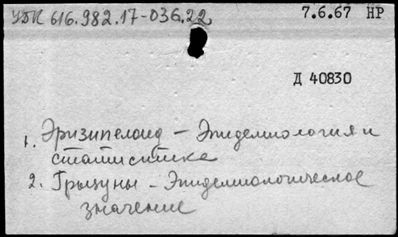 УДК 616.982.17-036.22 7.6.67 НР
Д 40830
1. Эризипелоид - Эпидемиология и
статистика
2. Грызуны - Эпидемиологическое
значение